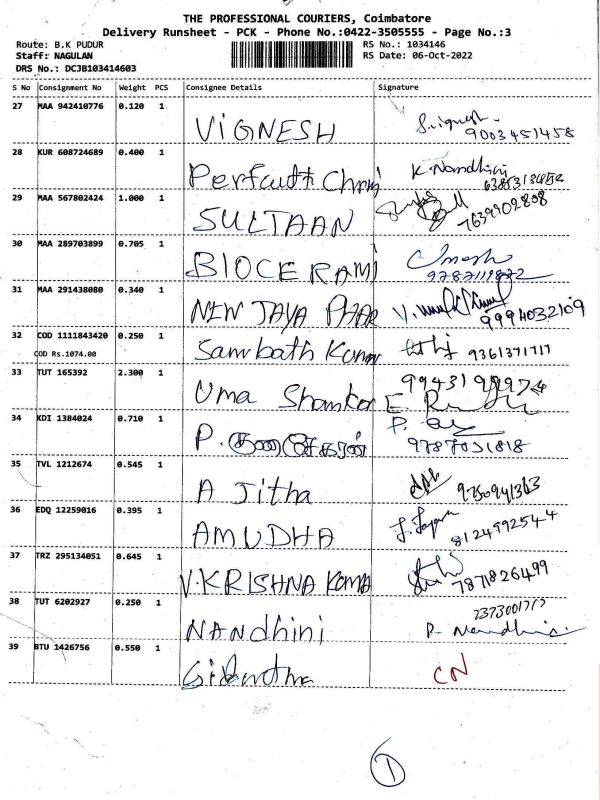 THE PROFESSIONAL COURIERS, Coimbatore
Delivery Runsheet - PCK - Phone No.:0422-3505555 - Page No.:3
Route: B.K PUDUR RS No.: 1034146
Staff: NAGULAN RS Date: 06-Oct-2022
DRS No.: DCJB103414603
S No Consignment No Weight PCS Consignee Details Signature
27 MAA 942410776 0.120 1 VIGNESH S.vignesh 9003451458
28 KUR 608724689 0.400 1 K. Nandhini
29 MAA 567802424 1.000 1 SULTAAN 7639902808
30 MAA 289703899 0.705 1 BIOCERAMI Umesh
31 MAA 291438080 0.340 1 NEW JAYA PHAR 9994032109
32 COD 1111843420 0.250 1 Sambath Kumar 9361371717
COD Rs.1074.00
33 TUT 165392 2.300 1 Uma Shankar
34 KDI 1384024 0.710 1 P. 9787051818
35 TVL 1212674 0.545 1 A Jitha
36 EDQ 12259016 0.395 1 AMUDHA 8124992544
37 TRZ 295134051 0.645 1 V.KRISHNA KUMA 7871826499
38 TUT 6202927 0.250 1 NANdhini P. Nandhini
39 BTU 1426756 0.550 1 CN
1